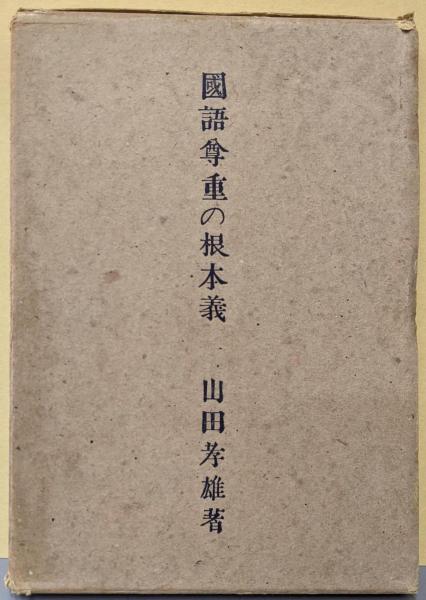 國語尊重の根本義　山田孝雄著